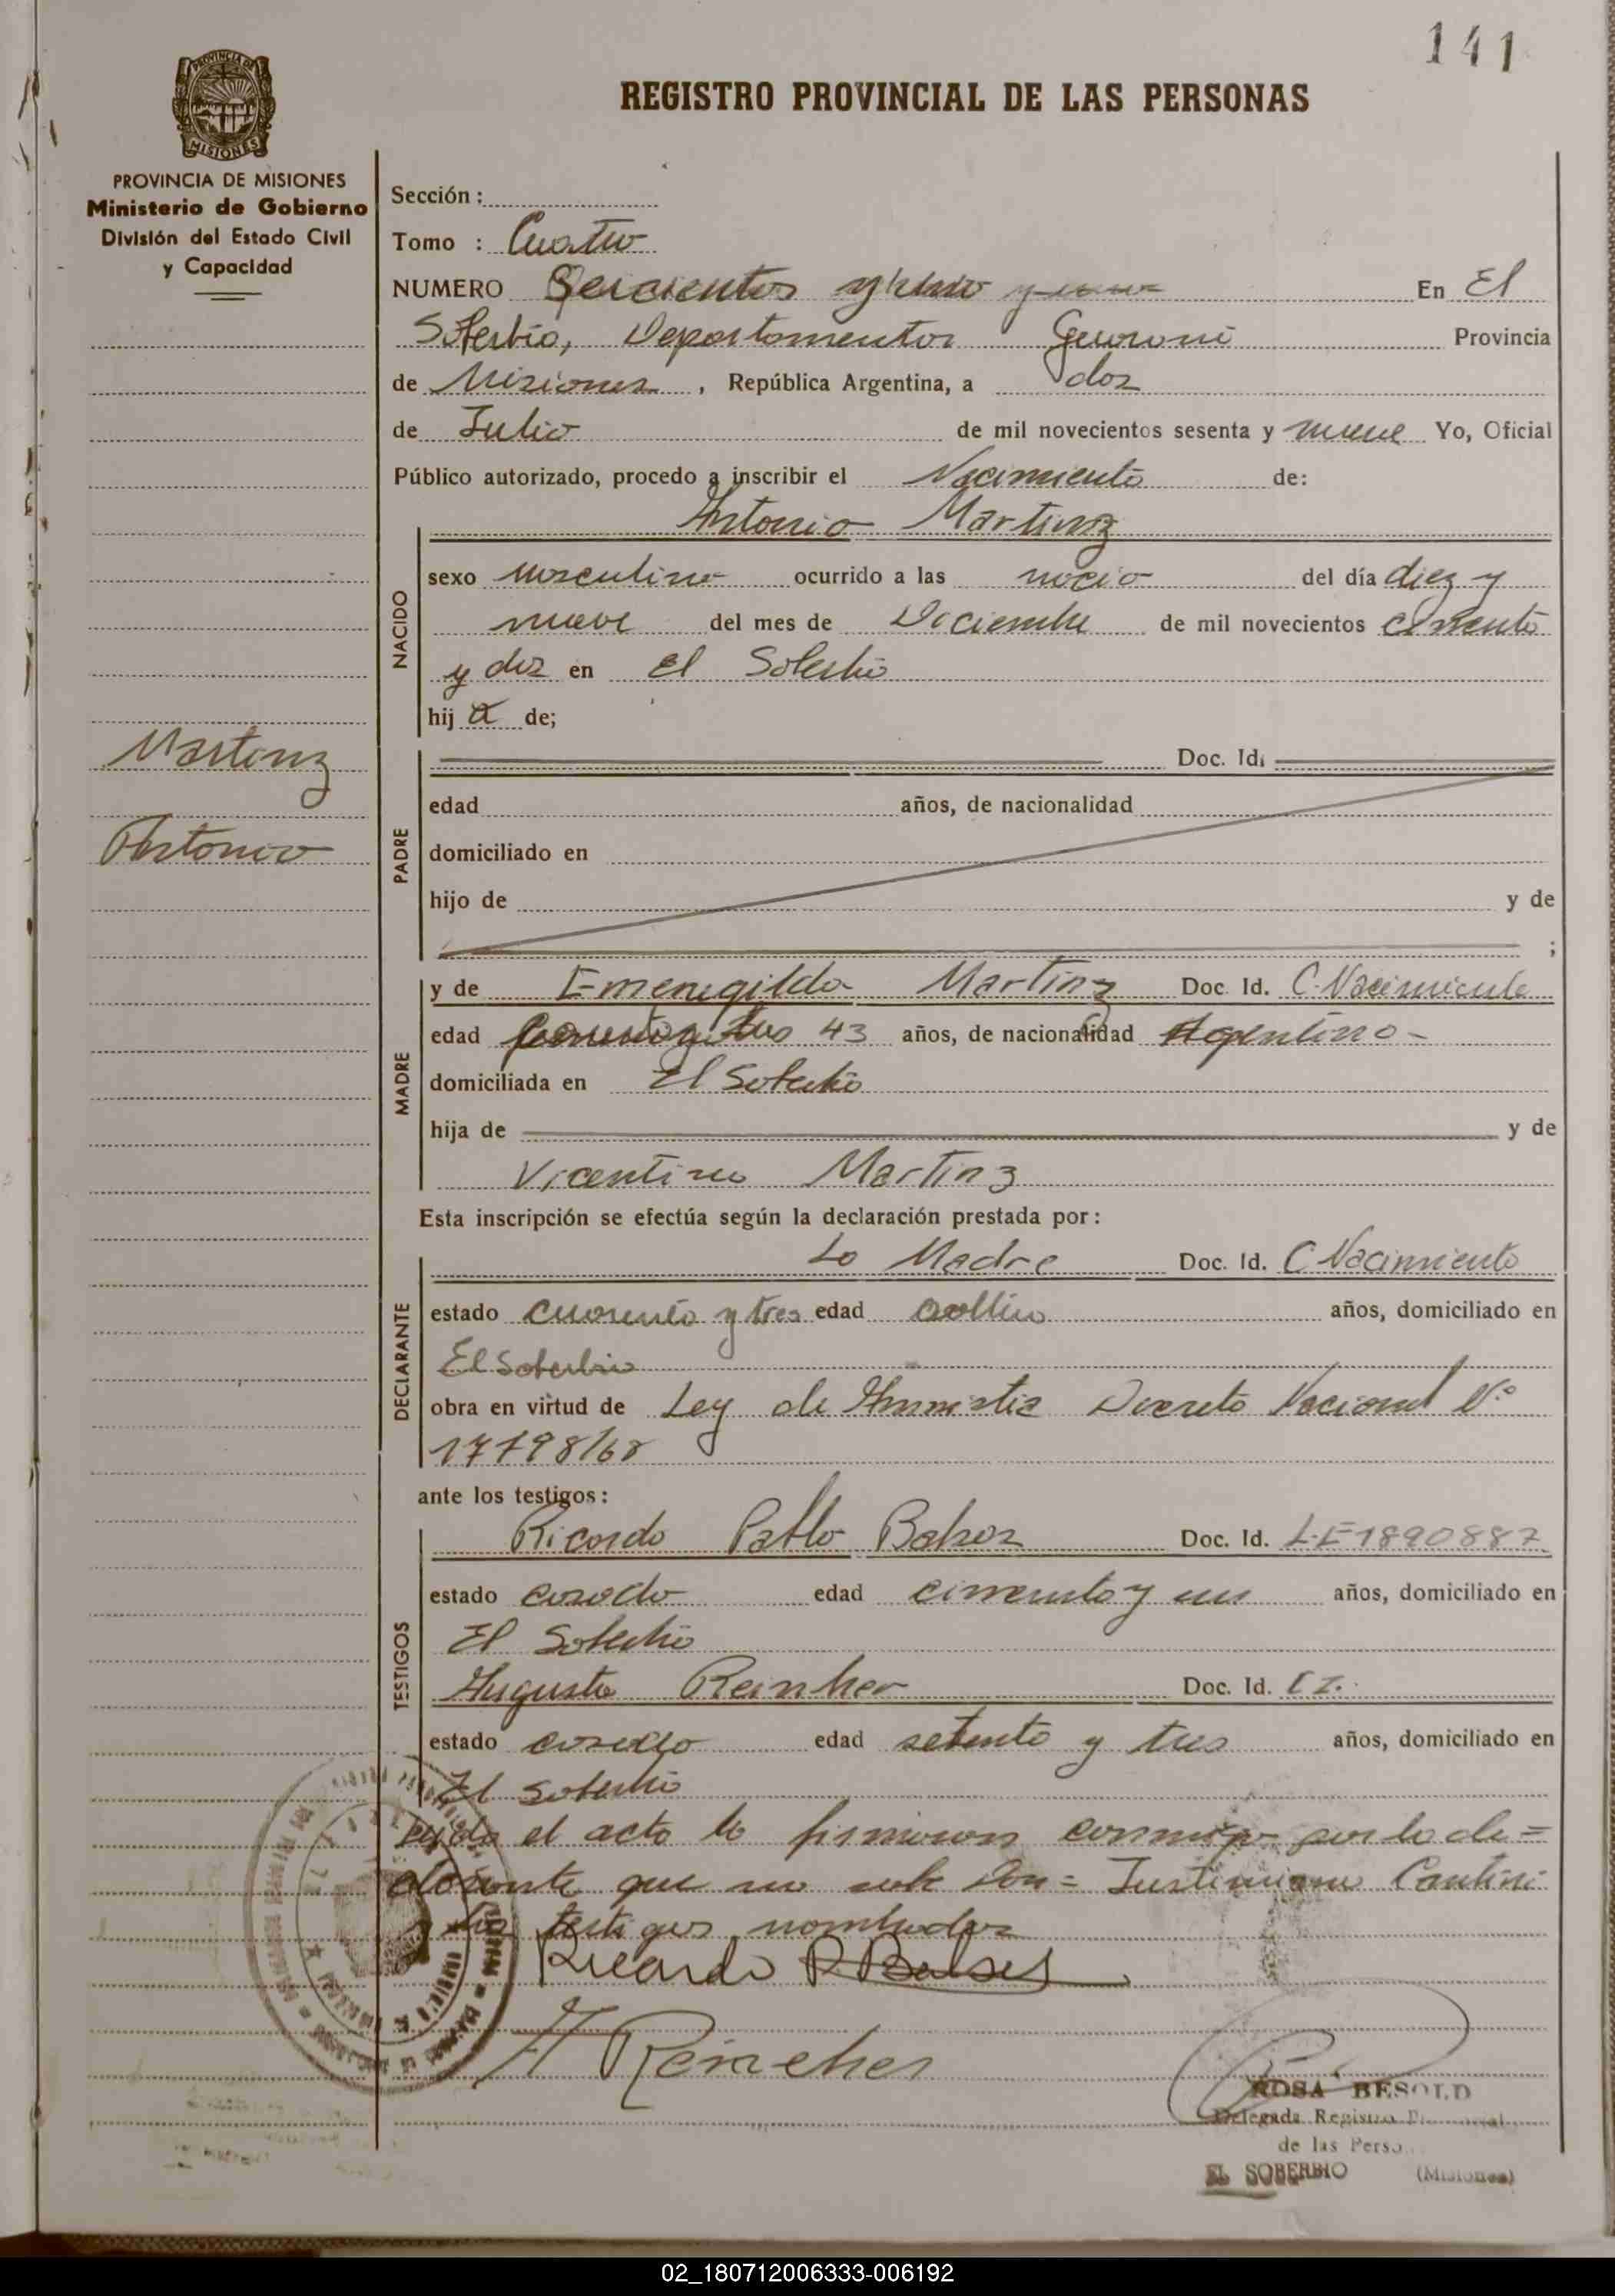 141
REGISTRO PROVINCIAL DE LAS PERSONAS
PROVINCIA DE MISIONES
MISIONES
PROVINCIA DE MISIONES
Ministerio de Gobierno
División del Estado Civil
y Capacidad
Sección :
Tomo : Cuatro
NUMERO Seicientos y En El
Soberbio, Departamentos Guarani Provincia
de Misiones , República Argentina, a dos
de Julio de mil novecientos sesenta y nueve Yo, Oficial
Público autorizado, procedo a inscribir el Nacimiento de:
Antonio Martinz
NACIDO
sexo masculino ocurrido a las del día diez y
nueve del mes de Diciembre de mil novecientos
y dos en El Soberbio
hij a de;
Martinz
Antonio
PADRE
Doc. Id.
edad años, de nacionalidad
domiciliado en
hijo de y de
;
MADRE
y de Emenegilda Martinz Doc. Id. C. Nacimiento
edad 43 años, de nacionalidad Argentina -
domiciliada en El Soberbio
hija de y de
Vicentina Martinz
Esta inscripción se efectúa según la declaración prestada por :
DECLARANTE
La Madre Doc. Id. C Nacimiento
estado cuarenta y tres edad años, domiciliado en
El Soberbio
obra en virtud de Ley de Decreto Nacional Nº
17798/68
ante los testigos :
TESTIGOS
Ricardo Pablo Doc. Id. L.E 1890887
estado casado edad y un años, domiciliado en
El Soberbio
Augusto Reinher Doc. Id.
estado casado edad setenta y tres años, domiciliado en
El Soberbio
el acta la firmaron conmigo por la de=
clarante que no sabe Don= Justiniano
los testigos nombrados
Ricardo P.
A Reincher
ROSA BESOLD
Delegada Registro
de las Perso
EL SOBERBIO (Misiones)
02_180712006333-006192